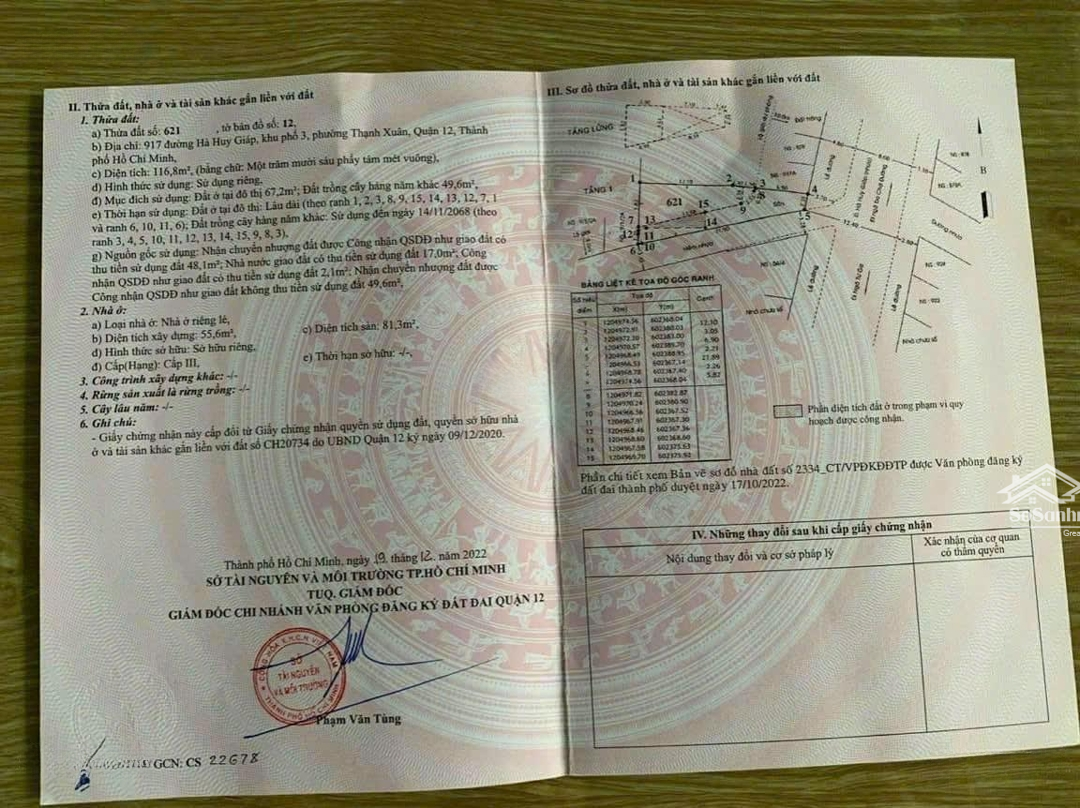 II. Thửa đất, nhà ở và tài sản khác gắn liền với đất
1. Thửa đất:
a) Thửa đất số: 621 , tờ bản đồ số: 12,
b) Địa chỉ: 917 đường Hà Huy Giáp, khu phố 3, phường Thạnh Xuân, Quận 12, Thành
phố Hồ Chí Minh,
c) Diện tích: 116,8m², (bằng chữ: Một trăm mười sáu phẩy tám mét vuông),
d) Hình thức sử dụng: Sử dụng riêng,
đ) Mục đích sử dụng: Đất ở tại đô thị 67,2m²; Đất trồng cây hàng năm khác 49,6m²,
e) Thời hạn sử dụng: Đất ở tại đô thị: Lâu dài (theo ranh 1, 2, 3, 8, 9, 15, 14, 13, 12, 7, 1
và ranh 6, 10, 11, 6); Đất trồng cây hàng năm khác: Sử dụng đến ngày 14/11/2068 (theo
ranh 3, 4, 5, 10, 11, 12, 13, 14, 15, 9, 8, 3),
g) Nguồn gốc sử dụng: Nhận chuyển nhượng đất được Công nhận QSDĐ như giao đất có
thu tiền sử dụng đất 48,1m²; Nhà nước giao đất có thu tiền sử dụng đất 17,0m²; Công
nhận QSDĐ như giao đất có thu tiền sử dụng đất 2,1m²; Nhận chuyển nhượng đất được
Công nhận QSDĐ như giao đất không thu tiền sử dụng đất 49,6m²,
2. Nhà ở:
a) Loại nhà ở: Nhà ở riêng lẻ,
b) Diện tích xây dựng: 55,6m², c) Diện tích sàn: 81,3m²,
d) Hình thức sở hữu: Sở hữu riêng,
đ) Cấp(Hạng): Cấp III, e) Thời hạn sở hữu: -/-,
3. Công trình xây dựng khác: -/-
4. Rừng sản xuất là rừng trồng: -/-
5. Cây lâu năm: -/-
6. Ghi chú:
- Giấy chứng nhận này cấp đổi từ Giấy chứng nhận quyền sử dụng đất, quyền sở hữu nhà
ở và tài sản khác gắn liền với đất số CH20734 do UBND Quận 12 ký ngày 09/12/2020.
Thành phố Hồ Chí Minh, ngày 19 tháng 12 năm 2022
SỞ TÀI NGUYÊN VÀ MÔI TRƯỜNG TP.HỒ CHÍ MINH
TUQ. GIÁM ĐỐC
GIÁM ĐỐC CHI NHÁNH VĂN PHÒNG ĐĂNG KÝ ĐẤT ĐAI QUẬN 12
CỘNG HÒA X.H.C.N VIỆT NAM
SỞ
TÀI NGUYÊN
VÀ MÔI TRƯỜNG
THÀNH PHỐ HỒ CHÍ MINH
Phạm Văn Tùng
GCN: CS 22678
III. Sơ đồ thửa đất, nhà ở và tài sản khác gắn liền với đất
TẦNG LỬNG
TẦNG 1
621
1
2
3
4
5
15
14
13
12
11
10
9
7
6
Lề đường
Đi ngã tư Ga
Lề đường
Đường nhựa
Nhà chưa số
Nhà chưa số
B
BẢNG LIỆT KÊ TỌA ĐỘ GÓC RANH
Số hiệu điểm Tọa độ Cạnh
X(m) Y(m)
1204974.36 602368.04
Phần diện tích đất ở trong phạm vi quy
hoạch được công nhận.
Phần chi tiết xem Bản vẽ sơ đồ nhà đất số 2334_CT/VPĐKĐĐTP được Văn phòng đăng ký
đất đai thành phố duyệt ngày 17/10/2022.
IV. Những thay đổi sau khi cấp giấy chứng nhận
Nội dung thay đổi và cơ sở pháp lý
Xác nhận của cơ quan
có thẩm quyền